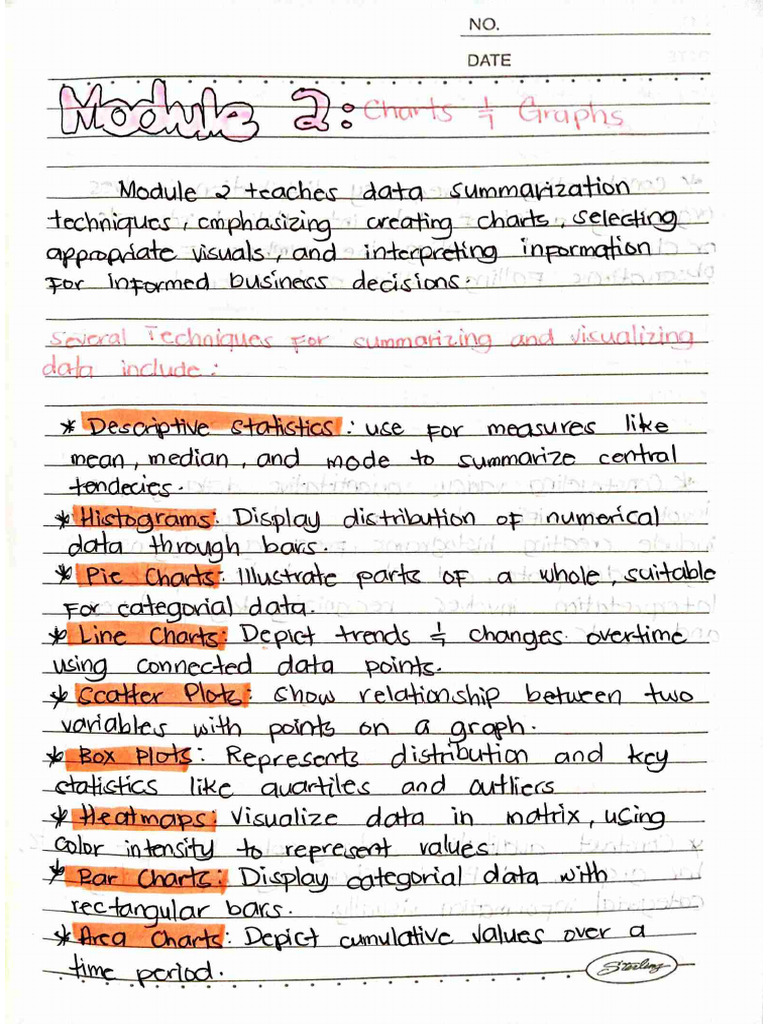 NO.
DATE
Module 2: Charts & Graphs
Module 2 teaches data summarization
techniques, emphasizing creating charts, selecting
appropriate visuals, and interpreting information
for informed business decisions.
Several Techniques for summarizing and visualizing
data include:
* Descriptive statistics: use for measures like
mean, median, and mode to summarize central
tendecies.
* Histograms: Display distribution of numerical
data through bars.
* Pie Charts: Illustrate parts of a whole, suitable
for categorial data.
* Line Charts: Depict trends & changes overtime
using connected data points.
* Scatter Plots: show relationship between two
variables with points on a graph.
* Box Plots: Represents distribution and key
statistics like quartiles and outliers
* Heatmaps: Visualize data in matrix, using
color intensity to represent values.
* Bar Charts: Display categorial data with
rectangular bars.
* Area Charts: Depict cumulative values over a
time period.
Sterling